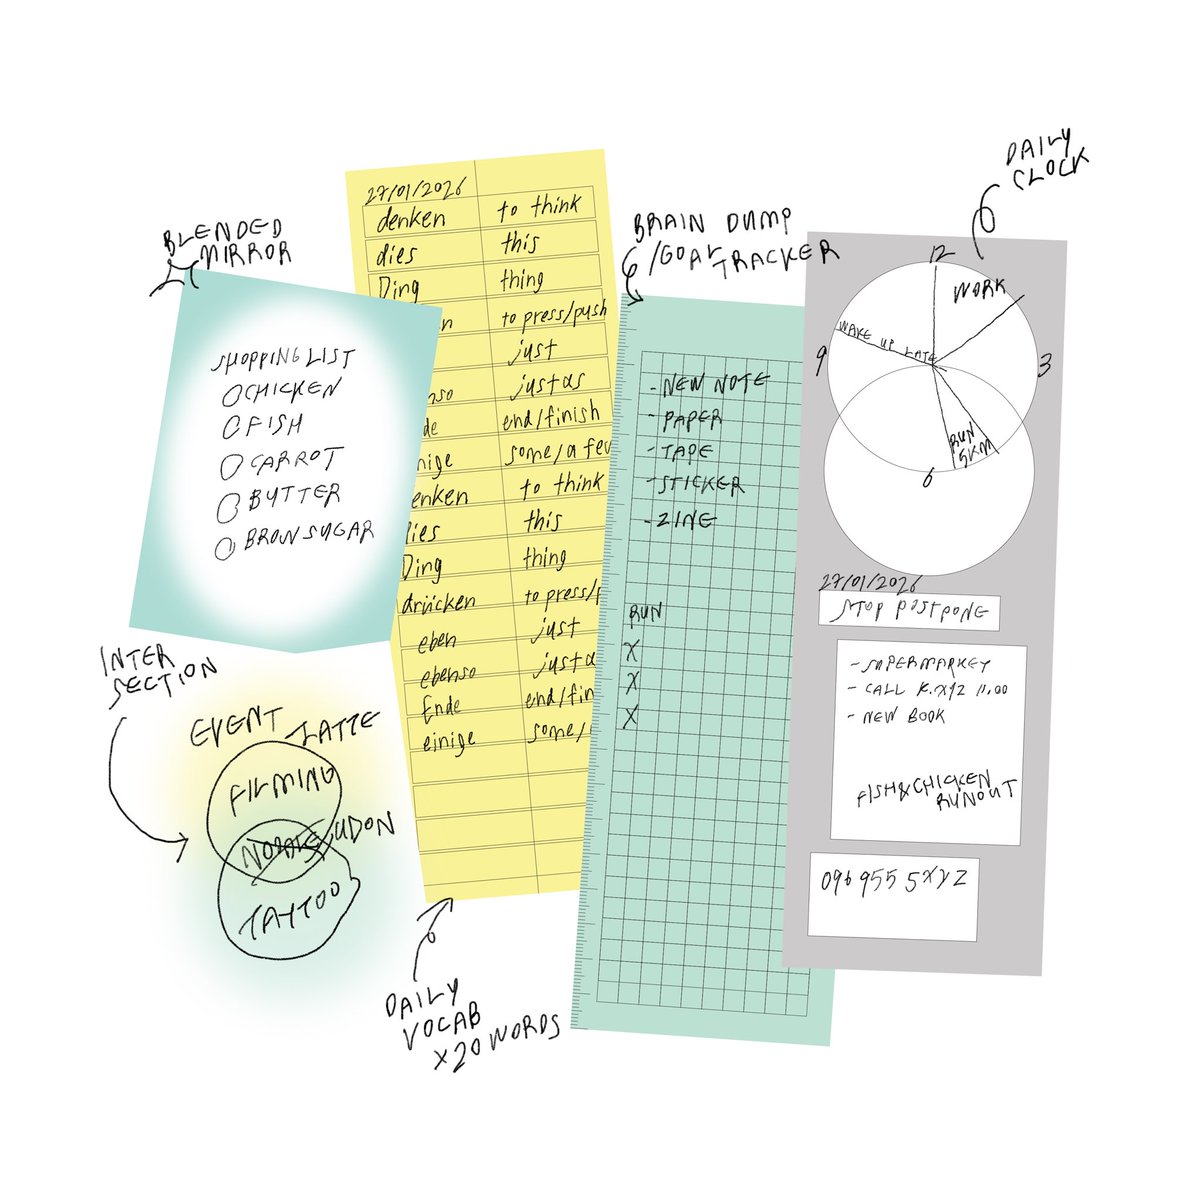 BLENDED
MIRROR
SHOPPING LIST
CHICKEN
FISH
CARROT
BUTTER
BROWN SUGAR
INTER
SECTION
EVENT
LATTE
FILMING
UDON
TATTOO
27/01/2026
denken to think
dies this
Ding thing
en to press/push
just
enso just as
de end/finish
nige some/a few
enken to think
dies this
Ding thing
drücken to press/p
eben just
ebenso just a
Ende end/fin
einige some/
DAILY
VOCAB
x20 WORDS
BRAIN DUMP
/GOAL TRACKER
- NEW NOTE
- PAPER
- TAPE
- STICKER
- ZINE
RUN
X
X
X
DAILY
CLOCK
12
WORK
WAKE UP LATE
9
3
RUN
5KM
6
27/01/2026
STOP POSTPONE
- SUPERMARKEY
- CALL K.XYZ 11.00
- NEW BOOK
FISH&CHICKEN
RUNOUT
096 955 5XYZ